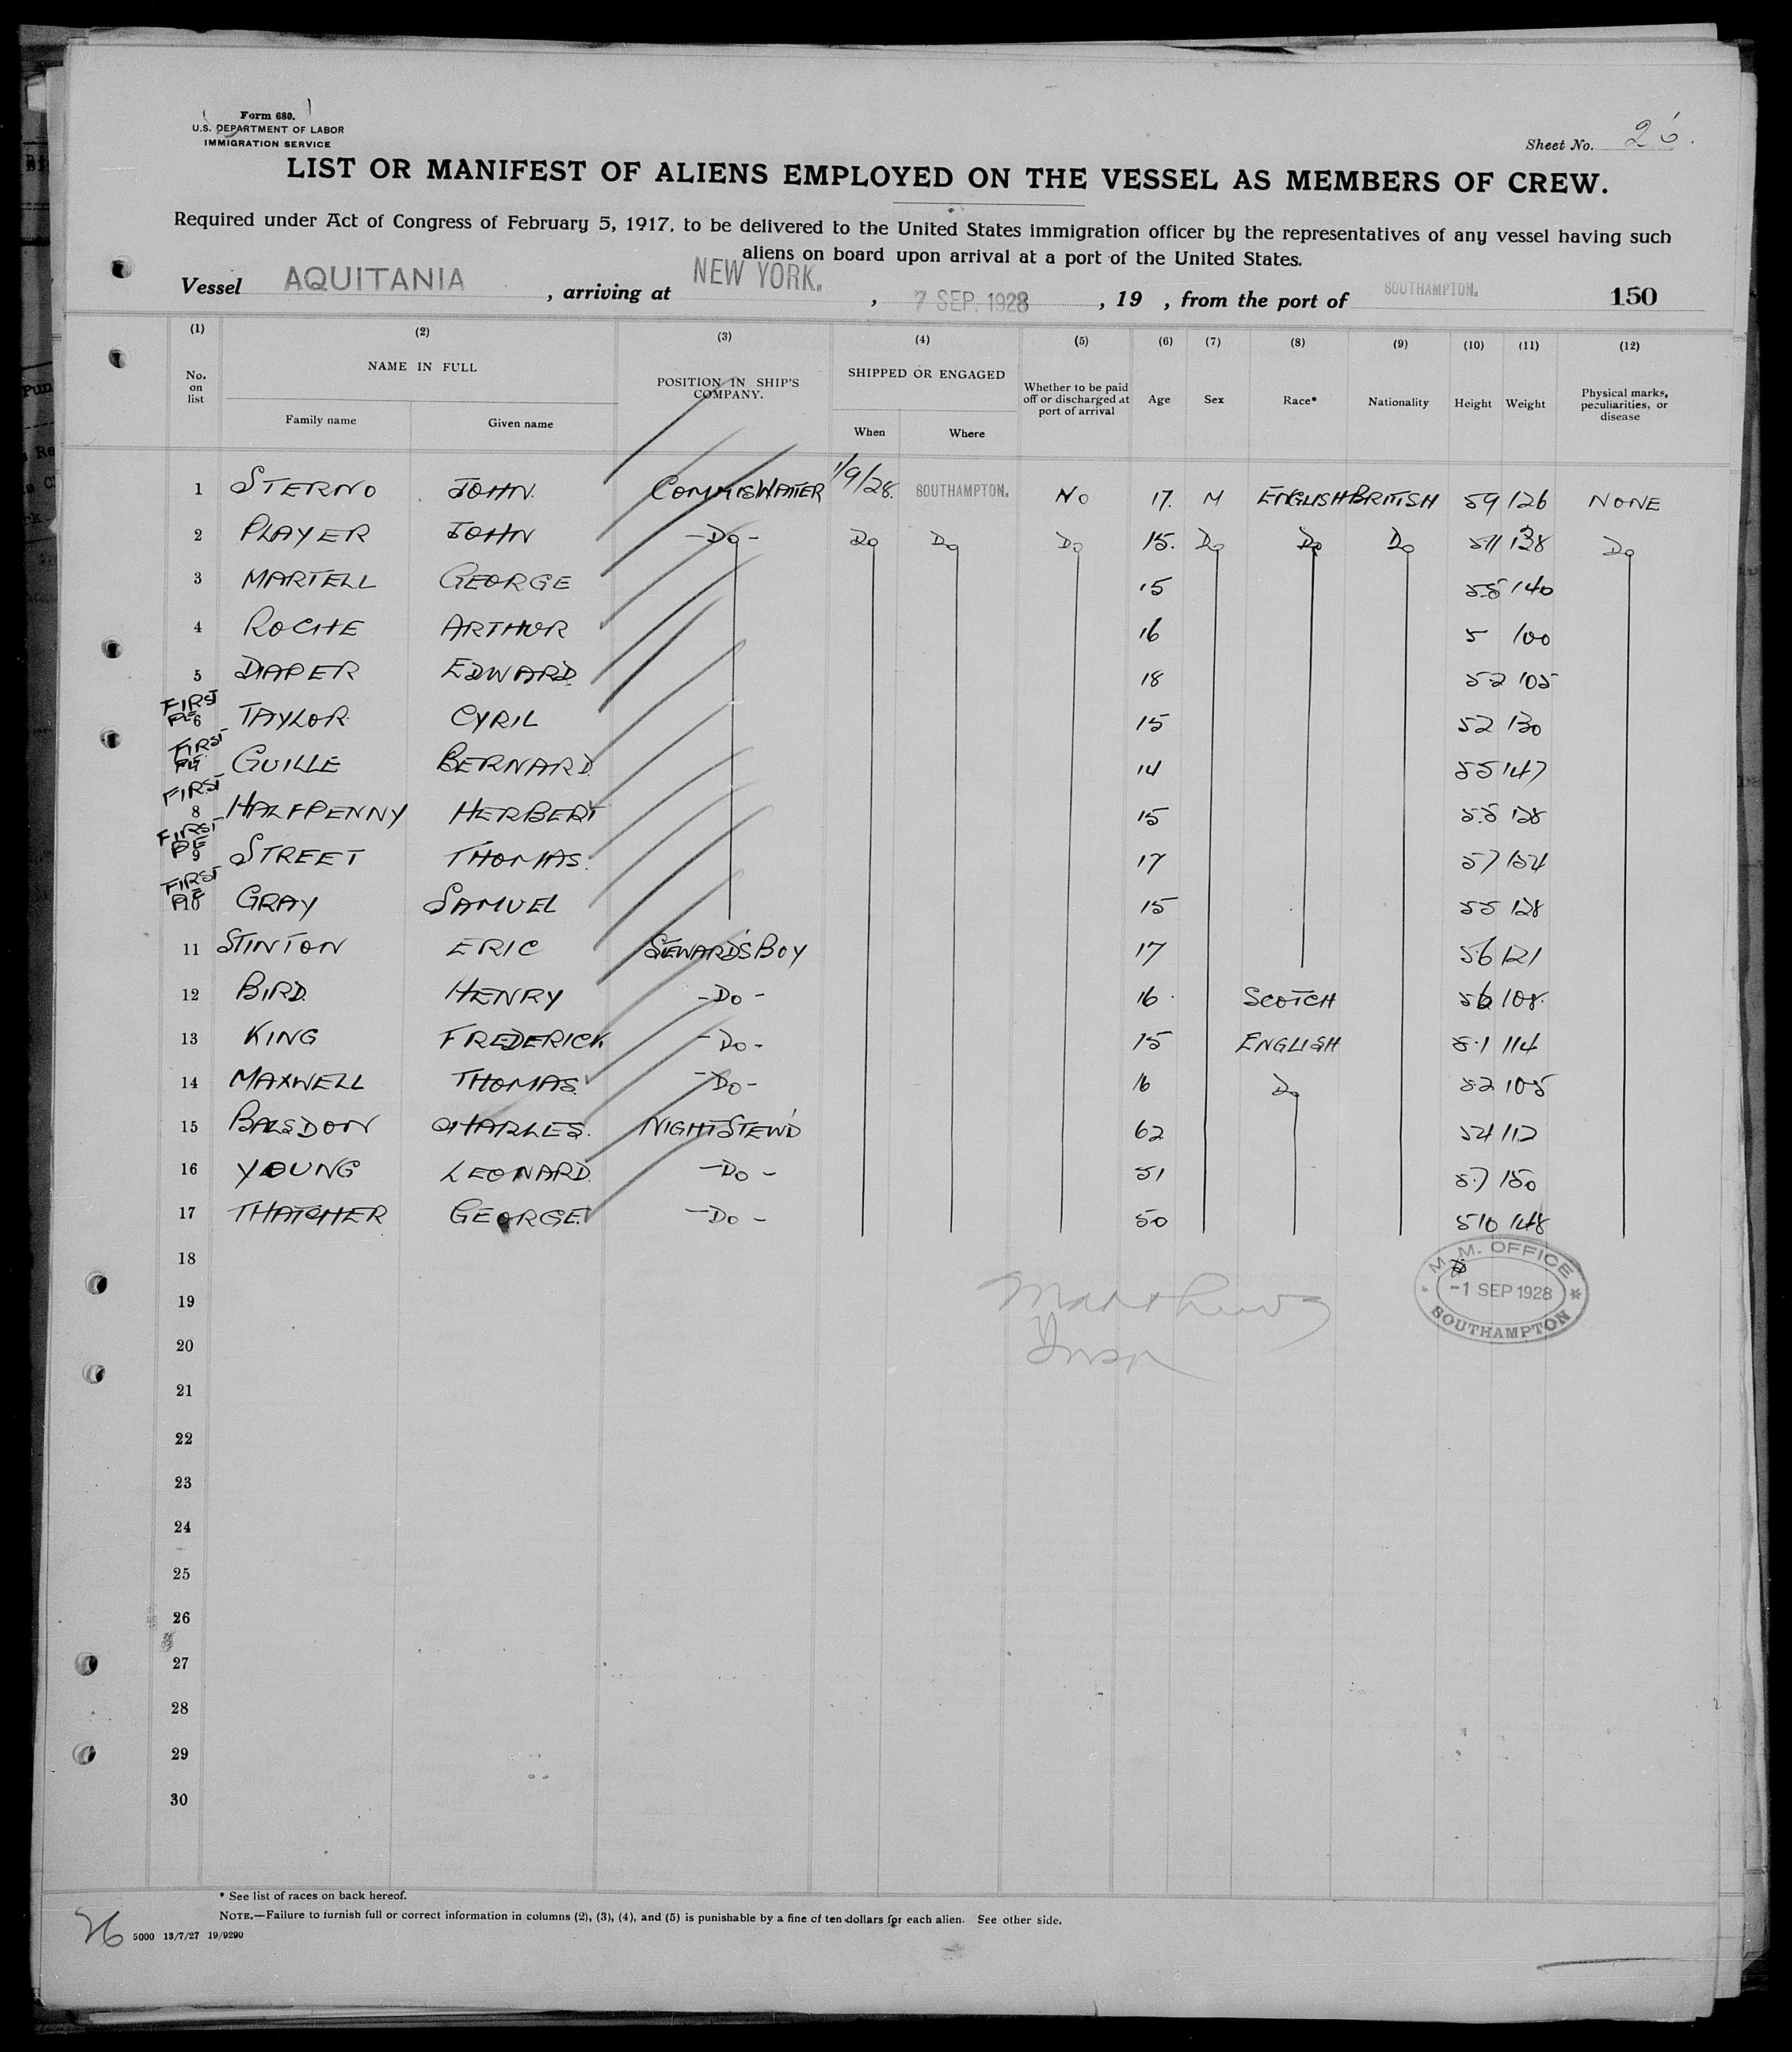 Form 680.
U.S. DEPARTMENT OF LABOR
IMMIGRATION SERVICE
Sheet No. 26.
LIST OR MANIFEST OF ALIENS EMPLOYED ON THE VESSEL AS MEMBERS OF CREW.
Required under Act of Congress of February 5, 1917, to be delivered to the United States immigration officer by the representatives of any vessel having such
aliens on board upon arrival at a port of the United States.
Vessel AQUITANIA, arriving at NEW YORK., 7 SEP. 1928, 19 , from the port of SOUTHAMPTON. 150
(1) (2) (3) (4) (5) (6) (7) (8) (9) (10) (11) (12)
No. on list NAME IN FULL POSITION IN SHIP'S COMPANY. SHIPPED OR ENGAGED Whether to be paid off or discharged at port of arrival Age Sex Race* Nationality Height Weight Physical marks, peculiarities, or disease
Family name Given name When Where
1 STERNO JOHN. COMMIS WAITER 1/9/28. SOUTHAMPTON. NO 17. M ENGLISH BRITISH 59 126 NONE
2 PLAYER JOHN -Do- Do Do Do 15. Do Do Do 511 138 Do
3 MARTELL GEORGE 15 5.5 140
4 ROCHE ARTHUR 16 5 100
5 DIAPER EDWARD. 18 5.2 105
FIRST
6 TAYLOR. CYRIL 15 52 130
FIRST
GUILLE BERNARD. 14 55 147
FIRST
8 HALFPENNY HERBERT 15 5.5 128
FIRST
9 STREET THOMAS. 17 57 154
FIRST
10 GRAY SAMUEL 15 55 128
11 STINTON ERIC STEWARD'S BOY 17 56 121
12 BIRD. HENRY -Do- 16. SCOTCH 56 108.
13 KING FREDERICK. -Do- 15 ENGLISH 5.1 114
14 MAXWELL THOMAS. -Do- 16 Do 5.2 105
15 BALSDON CHARLES. NIGHT STEW'D 62 54 112
16 YOUNG LEONARD. -Do- 51 5.7 150
17 THATCHER GEORGE. -Do- 50 510 148
18
M. M. OFFICE
-1 SEP 1928
SOUTHAMPTON
19
Matthews
20
21
22
23
24
25
26
27
28
29
30
* See list of races on back hereof.
NOTE.—Failure to furnish full or correct information in columns (2), (3), (4), and (5) is punishable by a fine of ten dollars for each alien. See other side.
26
5000 13/7/27 19/9290